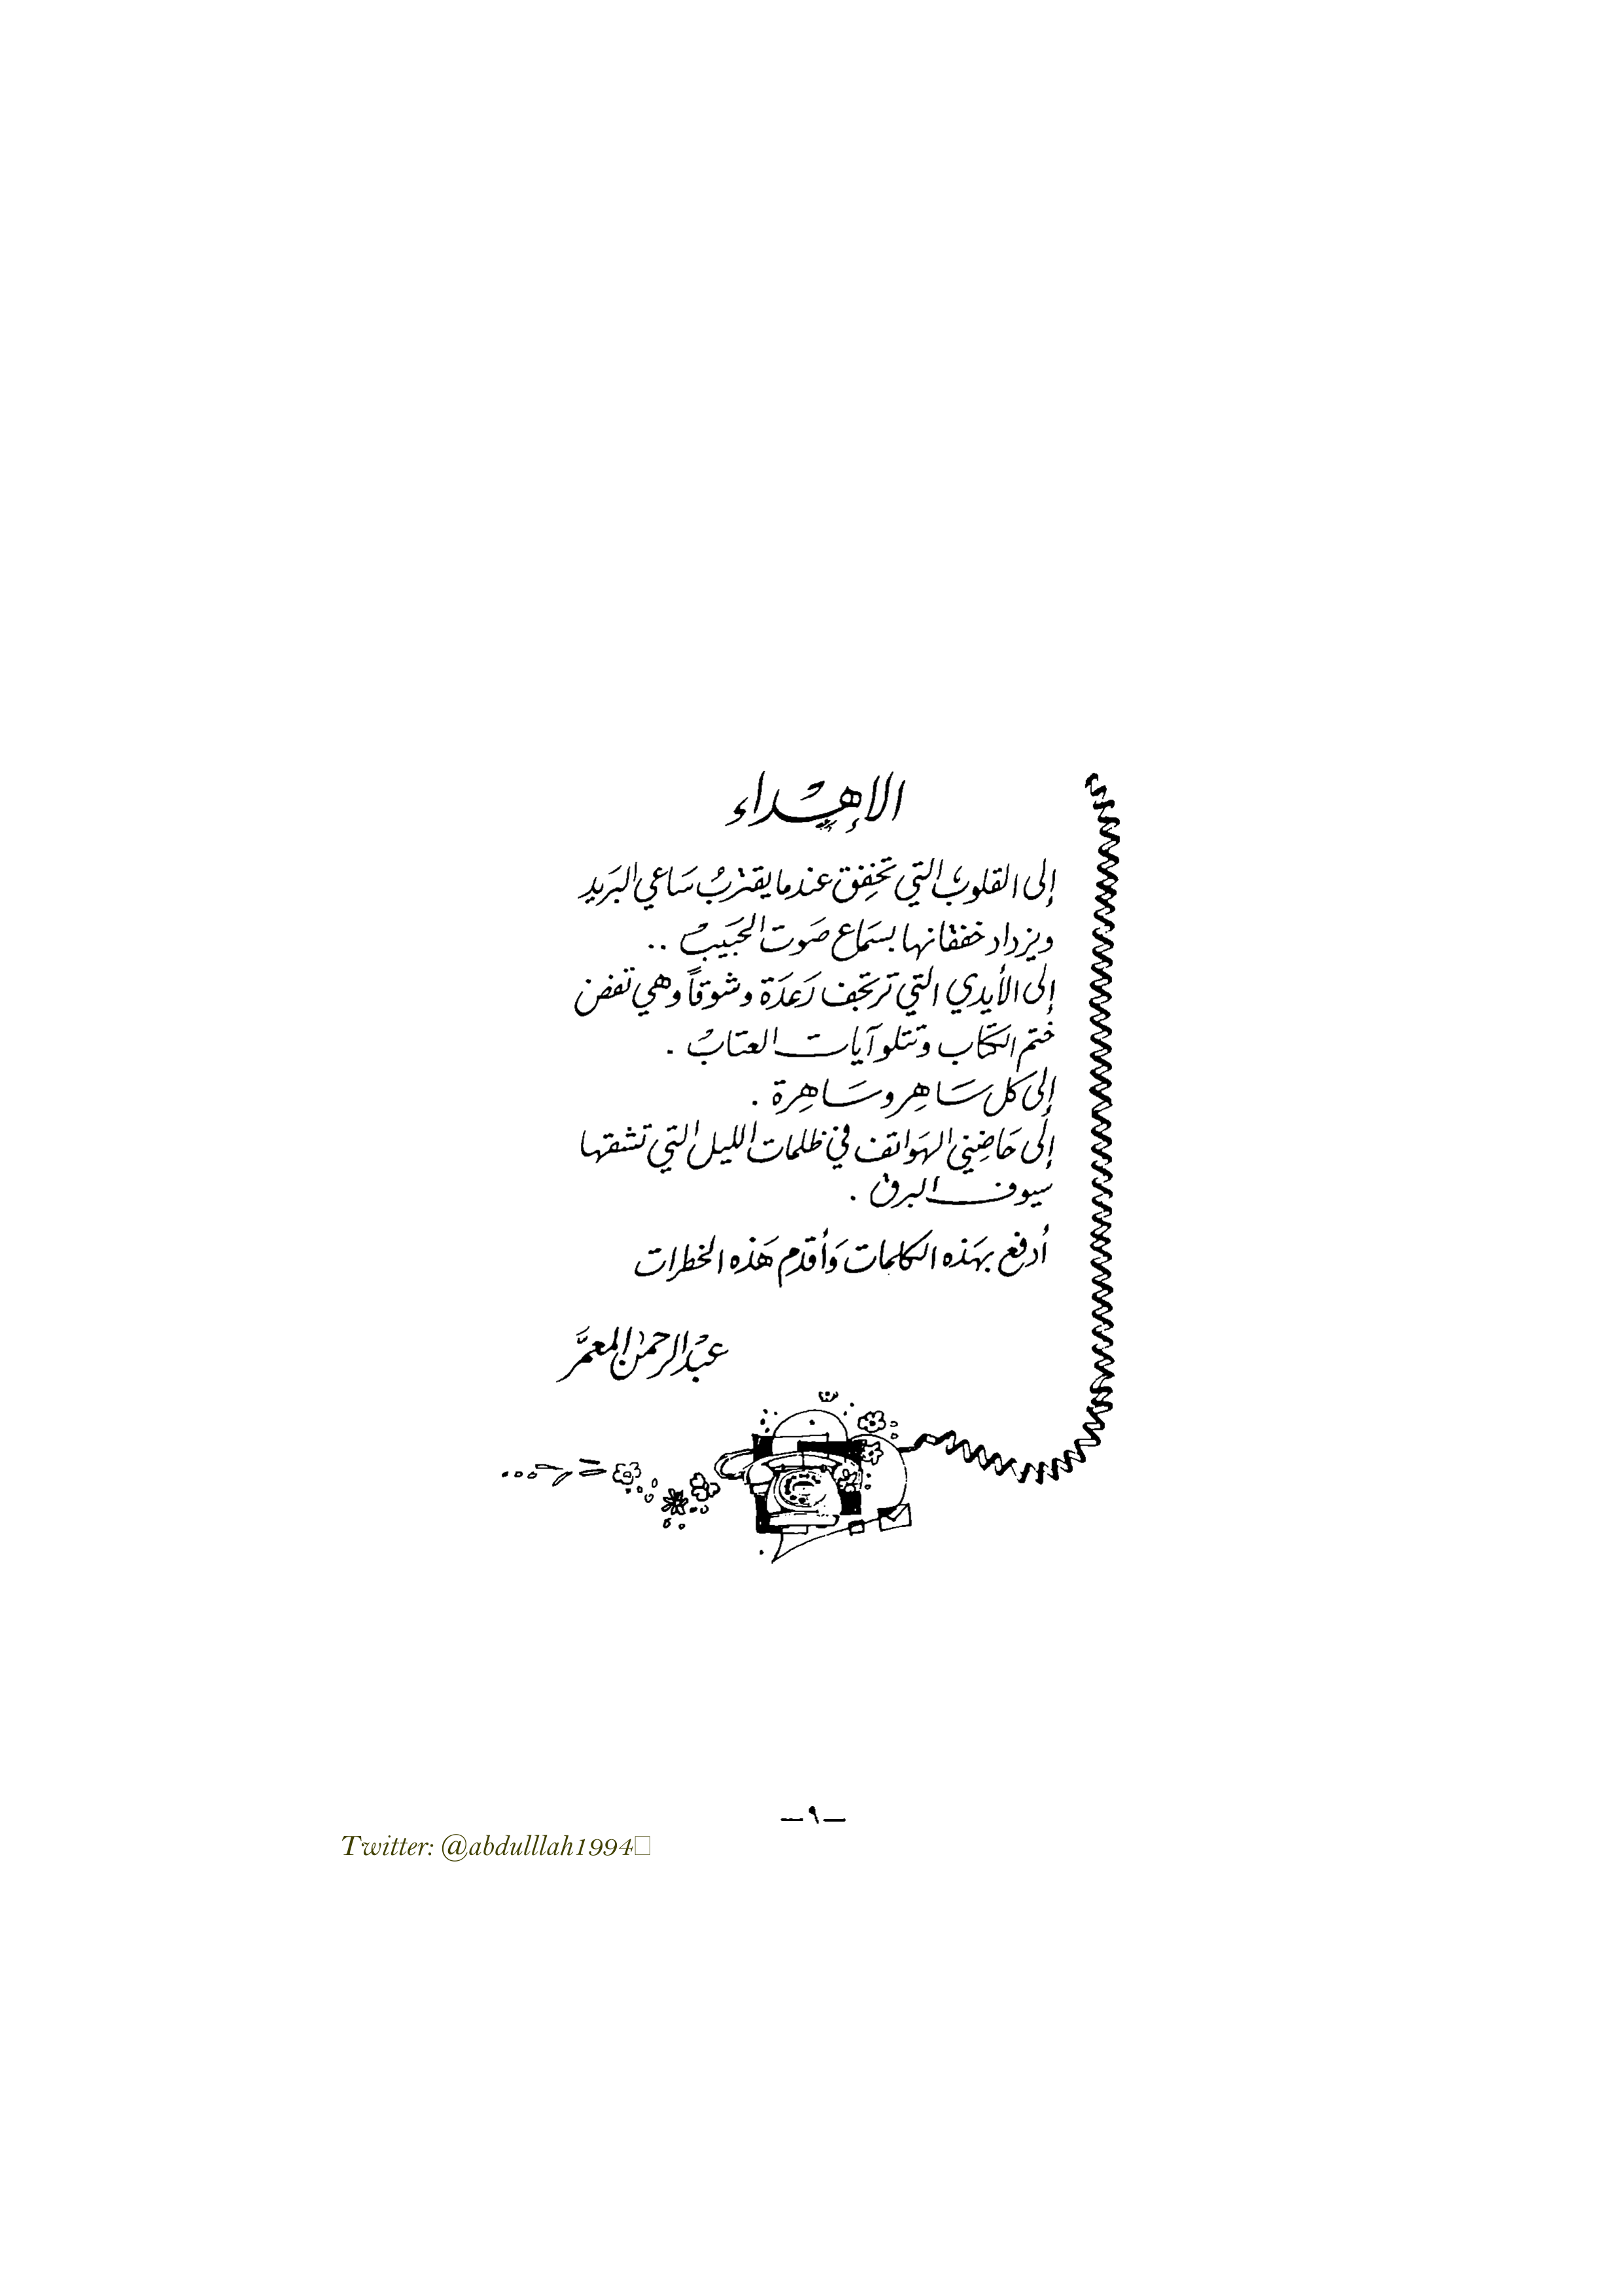 الإهداء
إلى القلوب التي تخفق عندما يقترب ساعي البريد
ويزداد خفقانها بسماع صوت الحبيب ..
إلى الأيدي التي ترتجف رعدة وشوقاً وهي تفض
ختم الكتاب وتتلو آيات العتاب .
إلى كل ساهر وساهرة .
إلى حاضني الهواتف في ظلمات الليل التي تشقها
سيوف البرق .
أدفع بهذه الكلمات وأقدم هذه الخطرات
عبد الرحمن المعمر
— ٩ —
Twitter: @abdulllah1994